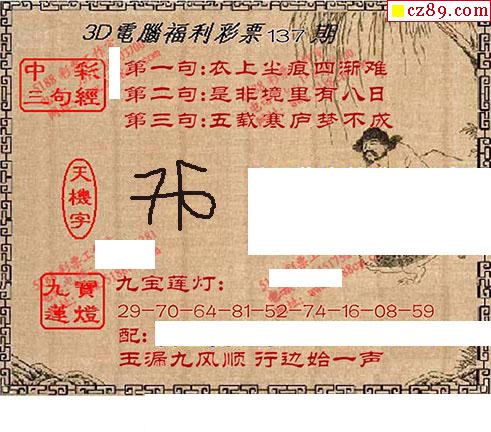 cz89.com
3D電腦福利彩票137期
中彩
三句經
第一句:衣上尘痕四渐难
第二句:是非境里有八日
第三句:五载寒庐梦不成
天機字
九寶
蓮燈
九宝莲灯:
29-70-64-81-52-74-16-08-59
配:
玉漏九风顺 行边始一声